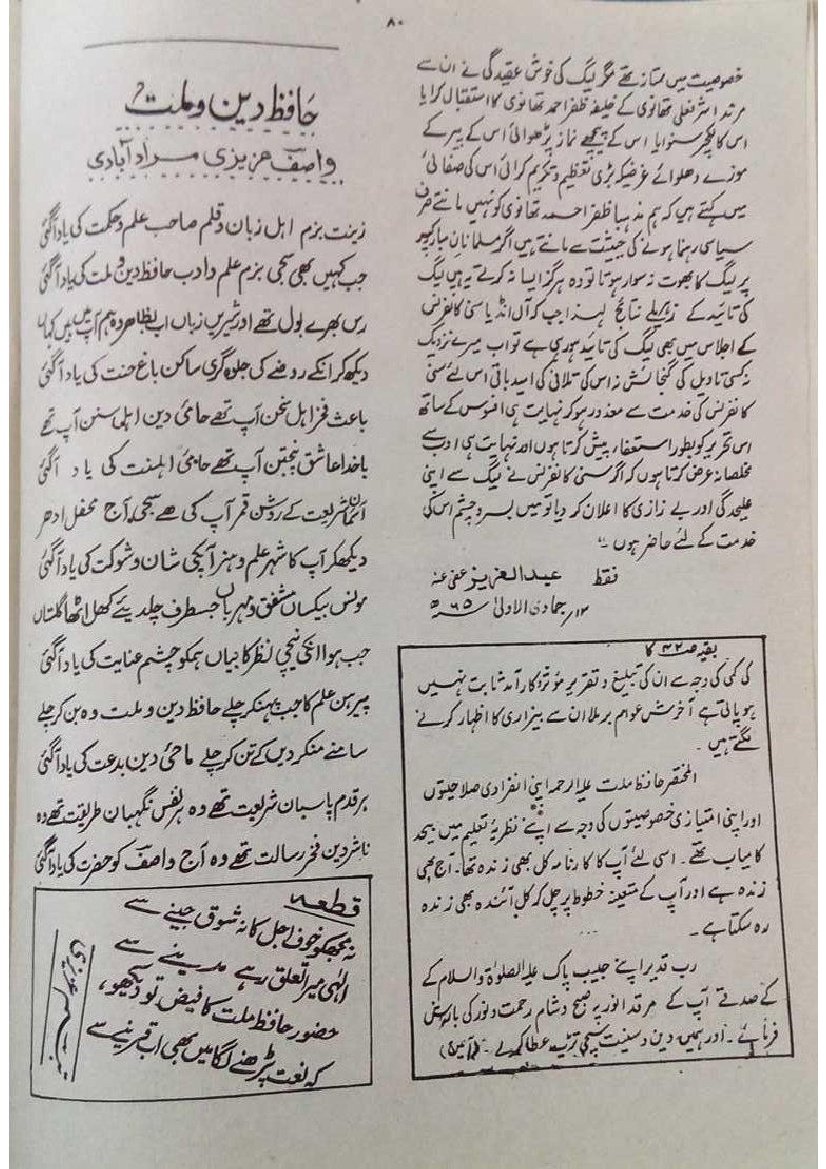 ۸۰
خصوصیت میں ممتاز تھے مگر لیگ کی خوش عقیدگی نے ان سے
مرتد اشرفعلی تھانوی کے خلیفہ ظفر احمد تھانوی کا استقبال کرایا
اس کا لکچر سنوایا اس کے پیچھے نماز پڑھوائی اس کے پیر کے
موزے دھلوائے غرضیکہ بڑی تعظیم و تکریم کرائی اس کی صفائی
میں کہتے ہیں کہ ہم مذہبا ظفر احمد تھانوی کو نہیں مانتے صرف
سیاسی رہنما ہونے کی حیثیت سے مانتے ہیں اگر مسلمانان مبارکپور
پر لیگ کا بھوت نہ سوار ہوتا تو وہ ہرگز ایسا نہ کرتے یہ ہیں لیگ
کی تائید کے زہریلے نتائج لہذا جب کہ آل انڈیا سنی کانفرنس
کے اجلاس میں بھی لیگ کی تائید ہو رہی ہے تو اب میرے نزدیک
نہ کسی تاویل کی گنجائش نہ اس کی تلافی کی امید باقی اس لئے سنی
کانفرنس کی خدمت سے معذور ہو کر نہایت ہی افسوس کے ساتھ
اس تحریر کو بطور استعفاء پیش کرتا ہوں اور نہایت ہی ادب سے
مخلصانہ عرض کرتا ہوں کہ اگر سنی کانفرنس نے لیگ سے اپنی
علیحدگی اور بے زاری کا اعلان کر دیا تو میں بسر و چشم اس کی
خدمت کے لئے حاضر ہوں ۔"
فقط عبدالعزیز عفی عنہ
۱۲؍ جمادی الاولیٰ ۶۵ھ
بقیہ صـ ۴۲ کا
کی کمی کی وجہ سے ان کی تبلیغ و تقریر مؤثر کارآمد ثابت نہیں
ہو پاتی ہے آخرش عوام برملا ان سے بیزاری کا اظہار کرنے
لگتے ہیں ۔
المختصر حافظ ملت علیہ الرحمہ اپنی انفرادی صلاحیتوں
اور اپنی امتیازی خصوصیتوں کی وجہ سے اپنے نظریۂ تعلیم میں بیحد
کامیاب تھے ۔ اسی لئے آپ کا کارنامہ کل بھی زندہ تھا ۔ آج بھی
زندہ ہے اور آپ کے متعینہ خطوط پر چل کر کل آئندہ بھی زندہ
رہ سکتا ہے ۔
رب قدیر اپنے حبیب پاک علیہ الصلوٰۃ والسلام کے
کے صدقے آپ کے مرقد انور پہ صبح و شام رحمت و نور کی بارش
فرمائے ۔ اور ہمیں دین و سنیت کی سچی تڑپ عطا کرے ۔ (آمین)
حافظ دین و ملت
واصف عزیزی مرادآبادی
زینت بزم اہل زبان و قلم صاحب علم و حکمت کی یاد آگئی
جب کہیں بھی سجی بزم علم و ادب حافظ دین و ملت کی یاد آگئی
رس بھرے بول تھے اور شیریں زباں اب بظاہر وہ ہم آپ میں ہیں کہاں
دیکھ کر انکے روضے کی جلوہ گری ساکن باغ جنت کی یاد آگئی
باعث فخر اہل سخن آپ تھے حامئ دین اہل سنن آپ تھے
باخدا عاشق پنجتن آپ تھے حامئ اہلسنت کی یاد آگئی
آسمان شریعت کے روشن قمر آپ کی ہے سجی آج محفل ادھر
دیکھ کر آپ کا شہر علم و ہنر آپکی شان و شوکت کی یاد آگئی
مونس بیکساں مشفق و مہرباں جسطرف چلدیئے کھل اٹھا گلستاں
جب ہوا انکی نیچی نظر کا بیاں ہمکو چشم عنایت کی یاد آگئی
پیرہن علم کا جب پہنکر چلے حافظ دین و ملت وہ بن کر چلے
سامنے منکر دیں کے تن کر چلے ماحئ دین بدعت کی یاد آگئی
ہر قدم پاسبان شریعت تھے وہ ہر نفس نگہبان طریقت تھے وہ
ناشر دین فخر رسالت تھے وہ آج واصف کو حضرت کی یاد آگئی
قطعہ
نہ مجھکو خوف اجل کا نہ شوق جینے سے
الٰہی میرا تعلق رہے مدینے سے
حضور حافظ ملت کا فیض تو دیکھو،
کہ نعت پڑھنے لگا میں بھی اب قرینے سے